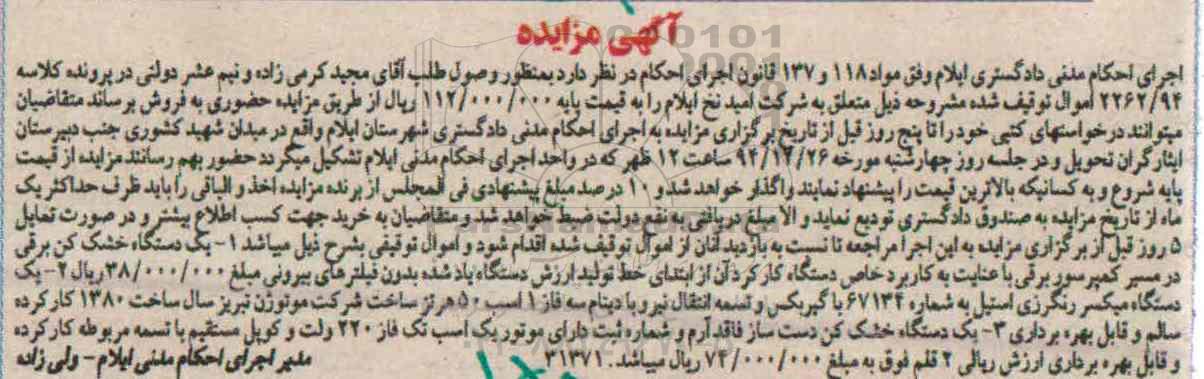 آگهی مزایده
اجرای احکام مدنی دادگستری ایلام وفق مواد ۱۱۸ و ۱۳۷ قانون اجرای احکام در نظر دارد بمنظور وصول طلب آقای مجید کرمی زاده و نیم عشر دولتی در پرونده کلاسه
۲۲۶۲/۹۴ اموال توقیف شده مشروحه ذیل متعلق به شرکت امید نخ ایلام را به قیمت پایه ۱۱۲/۰۰۰/۰۰۰ ریال از طریق مزایده حضوری به فروش برساند متقاضیان
میتوانند درخواستهای کتبی خود را تا پنج روز قبل از تاریخ برگزاری مزایده به اجرای احکام مدنی دادگستری شهرستان ایلام واقع در میدان شهید کشوری جنب دبیرستان
ایثارگران تحویل و در جلسه روز چهارشنبه مورخه ۹۴/۱۲/۲۶ ساعت ۱۲ ظهر که در واحد اجرای احکام مدنی ایلام تشکیل میگردد حضور بهم رسانند مزایده از قیمت
پایه شروع و به کسانیکه بالاترین قیمت را پیشنهاد نمایند واگذار خواهد شد و ۱۰ درصد مبلغ پیشنهادی فی المجلس از برنده مزایده اخذ و الباقی را باید ظرف حداکثر یک
ماه از تاریخ مزایده به صندوق دادگستری تودیع نماید و الا مبلغ دریافتی به نفع دولت ضبط خواهد شد و متقاضیان به خرید جهت کسب اطلاع بیشتر و در صورت تمایل
۵ روز قبل از برگزاری مزایده به این اجرا مراجعه تا نسبت به بازدید آنان از اموال توقیف شده اقدام شود و اموال توقیفی بشرح ذیل میباشد ۱- یک دستگاه خشک کن برقی
در مسیر کمپرسور برقی با عنایت به کاربرد خاص دستگاه کارکرد آن از ابتدای خط تولید ارزش دستگاه یاد شده بدون فیلترهای بیرونی مبلغ ۳۸/۰۰۰/۰۰۰ ریال ۲- یک
دستگاه میکسر رنگرزی استیل به شماره ۶۷۱۳۴ با گیربکس و تسمه انتقال نیرو با دینام سه فاز ۱ اسب ۵۰ هرتز ساخت شرکت موتوژن تبریز سال ساخت ۱۳۸۰ کارکرده
سالم و قابل بهره برداری ۳- یک دستگاه خشک کن دست ساز فاقد آرم و شماره ثبت دارای موتور یک اسب تک فاز ۲۲۰ ولت و کوپل مستقیم با تسمه مربوطه کارکرده
و قابل بهره برداری ارزش ریالی ۲ قلم فوق به مبلغ ۷۴/۰۰۰/۰۰۰ ریال میباشد. ۳۱۳۷۱ مدیر اجرای احکام مدنی ایلام - ولی زاده